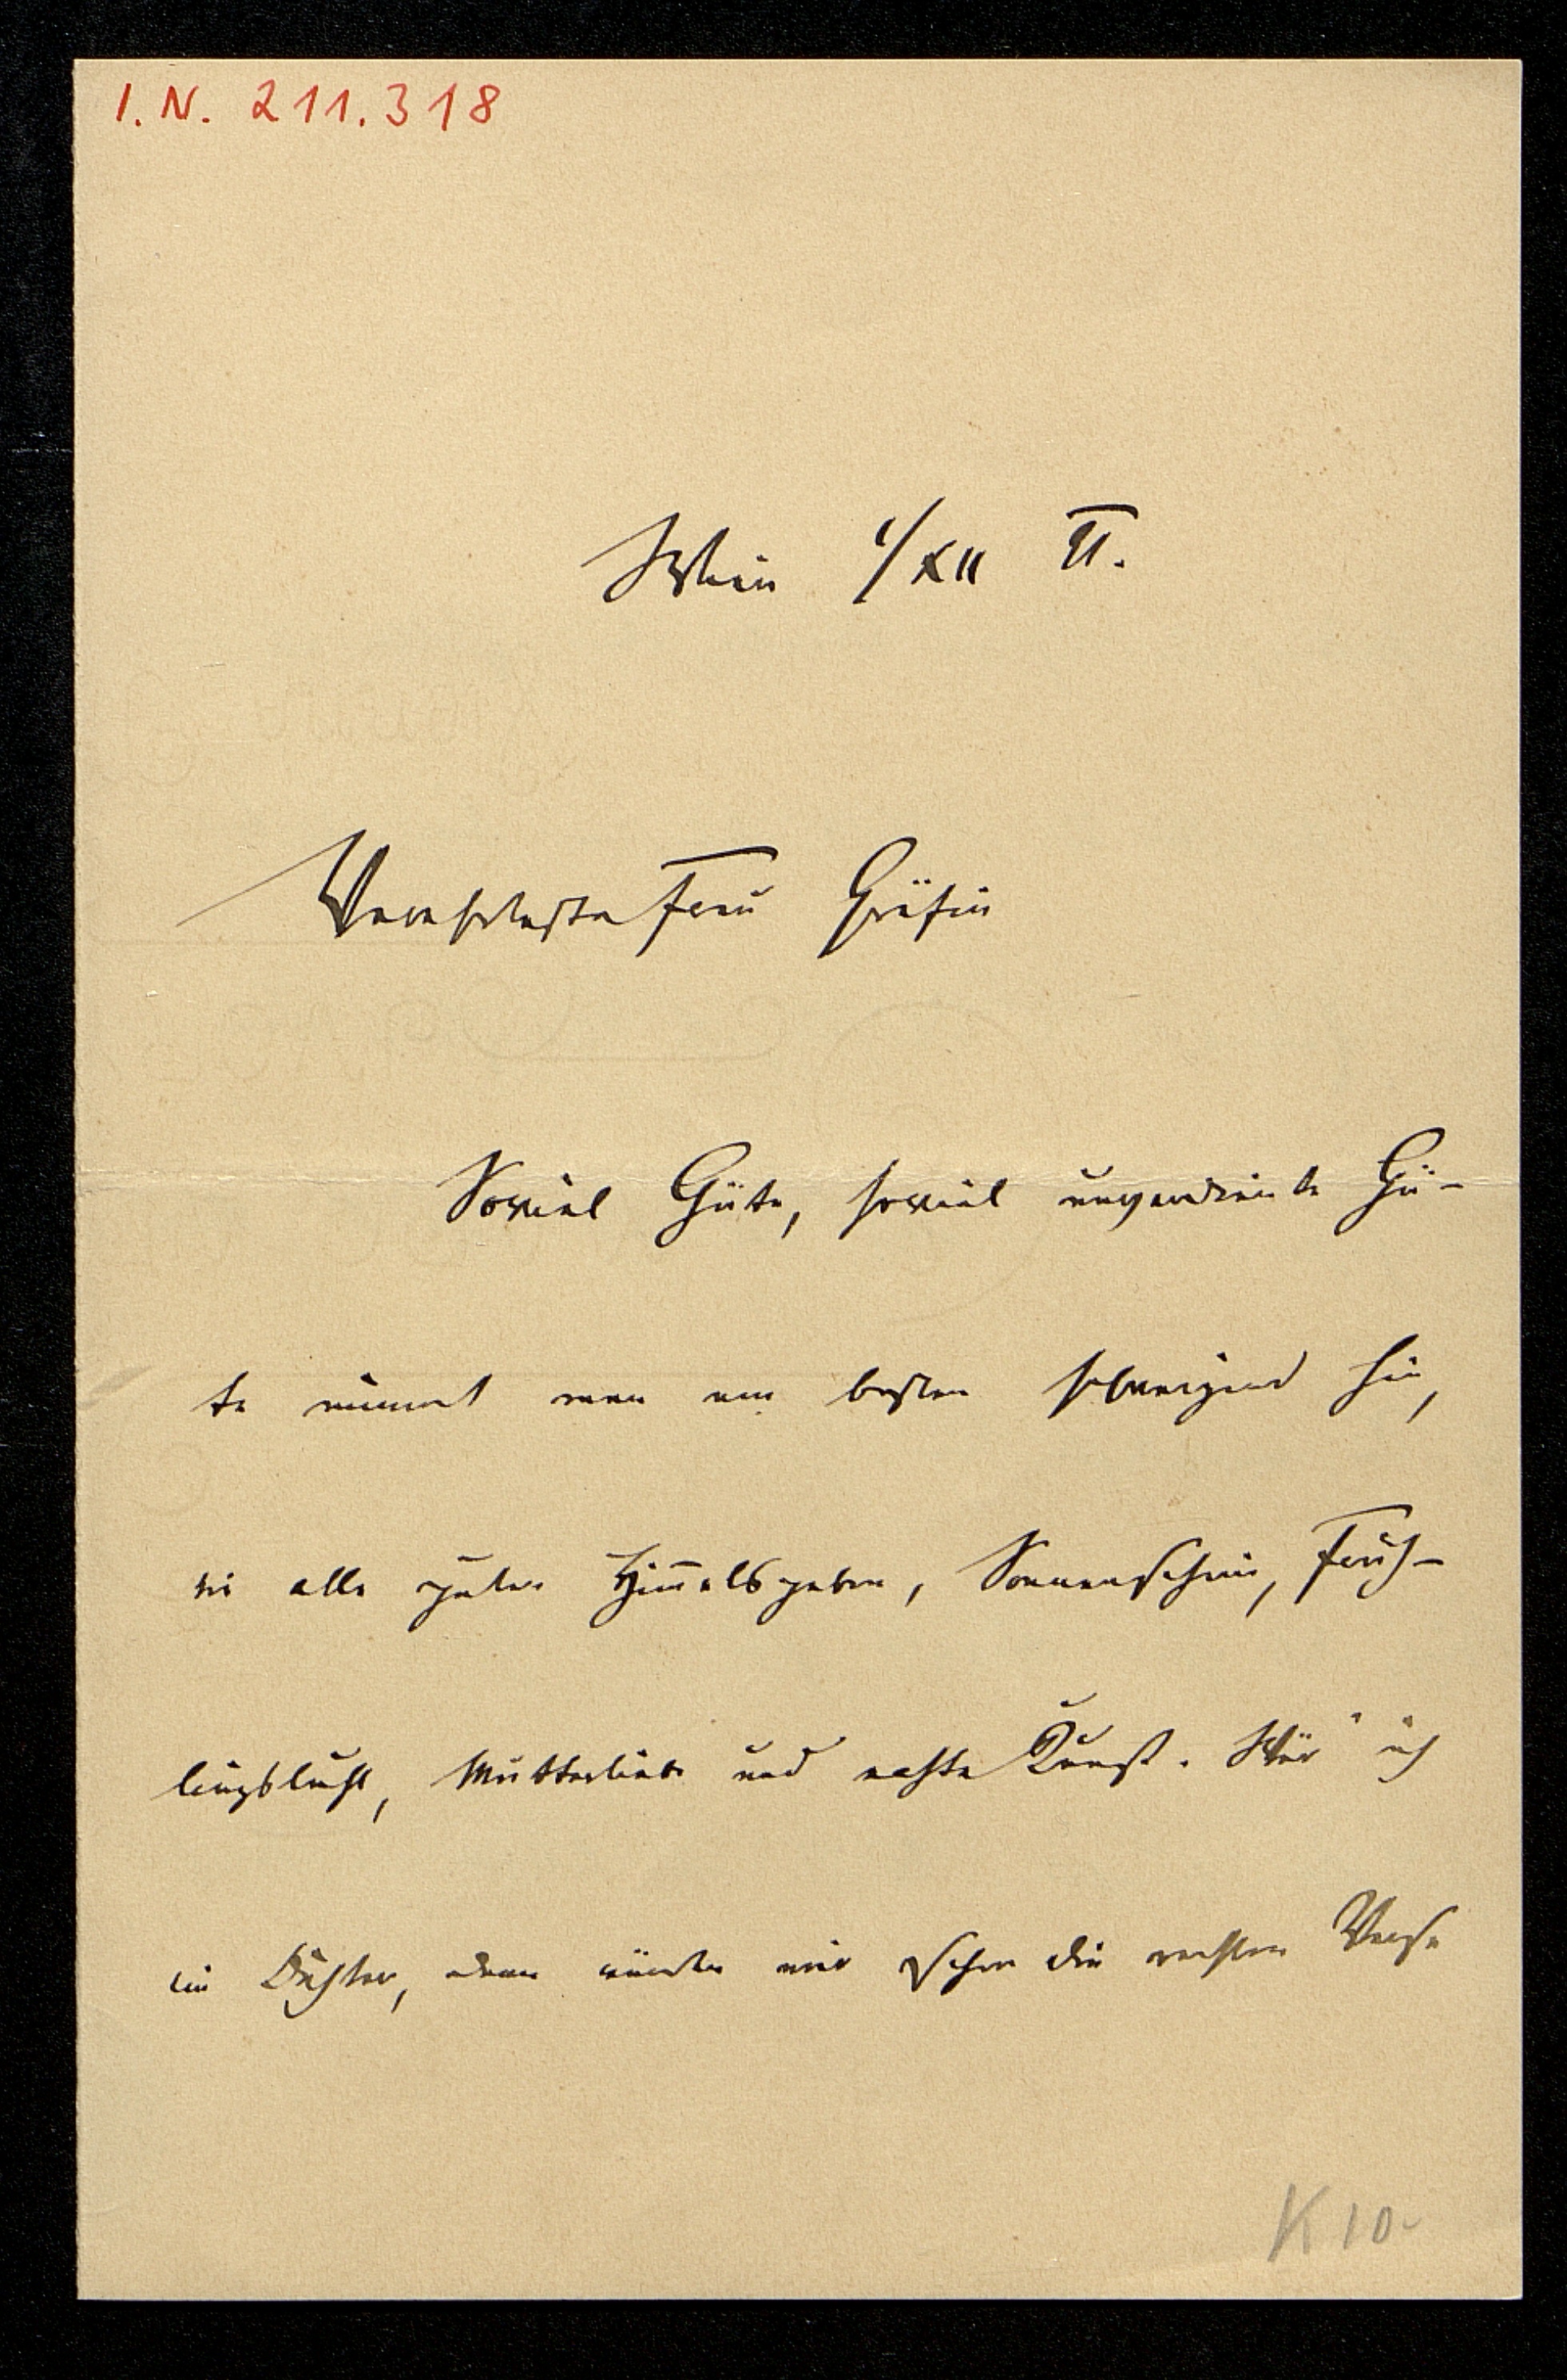 I. N. 211.318
Wien 1/XII 91.
Verehrteste Frau Gräfin
Soviel Güte, soviel unverdiente Gü-
te nimmt man am besten schweigend hin,
wie alle guten Him̄elsgaben, Sonnenschein, Früh-
lingsluft, Mutterliebe und echte Kunst. Wär' ich
ein Dichter, dann würden mir schon die rechten Verse
K 10-